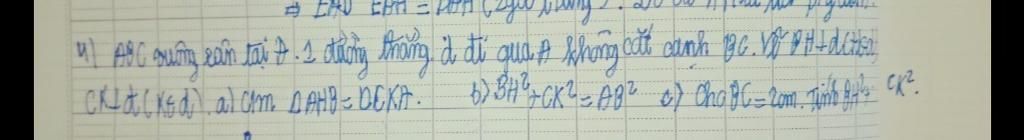 4) ABC vuông cân tại A. 1 đường thẳng d đi qua A không cắt cạnh BC. Vẽ BH⊥d (H∈d)
CK⊥d (K∈d). a) Cm ΔAHB = ΔCKA. b) BH² + CK² = AB² c) Cho BC = 2cm. Tính BH² + CK².